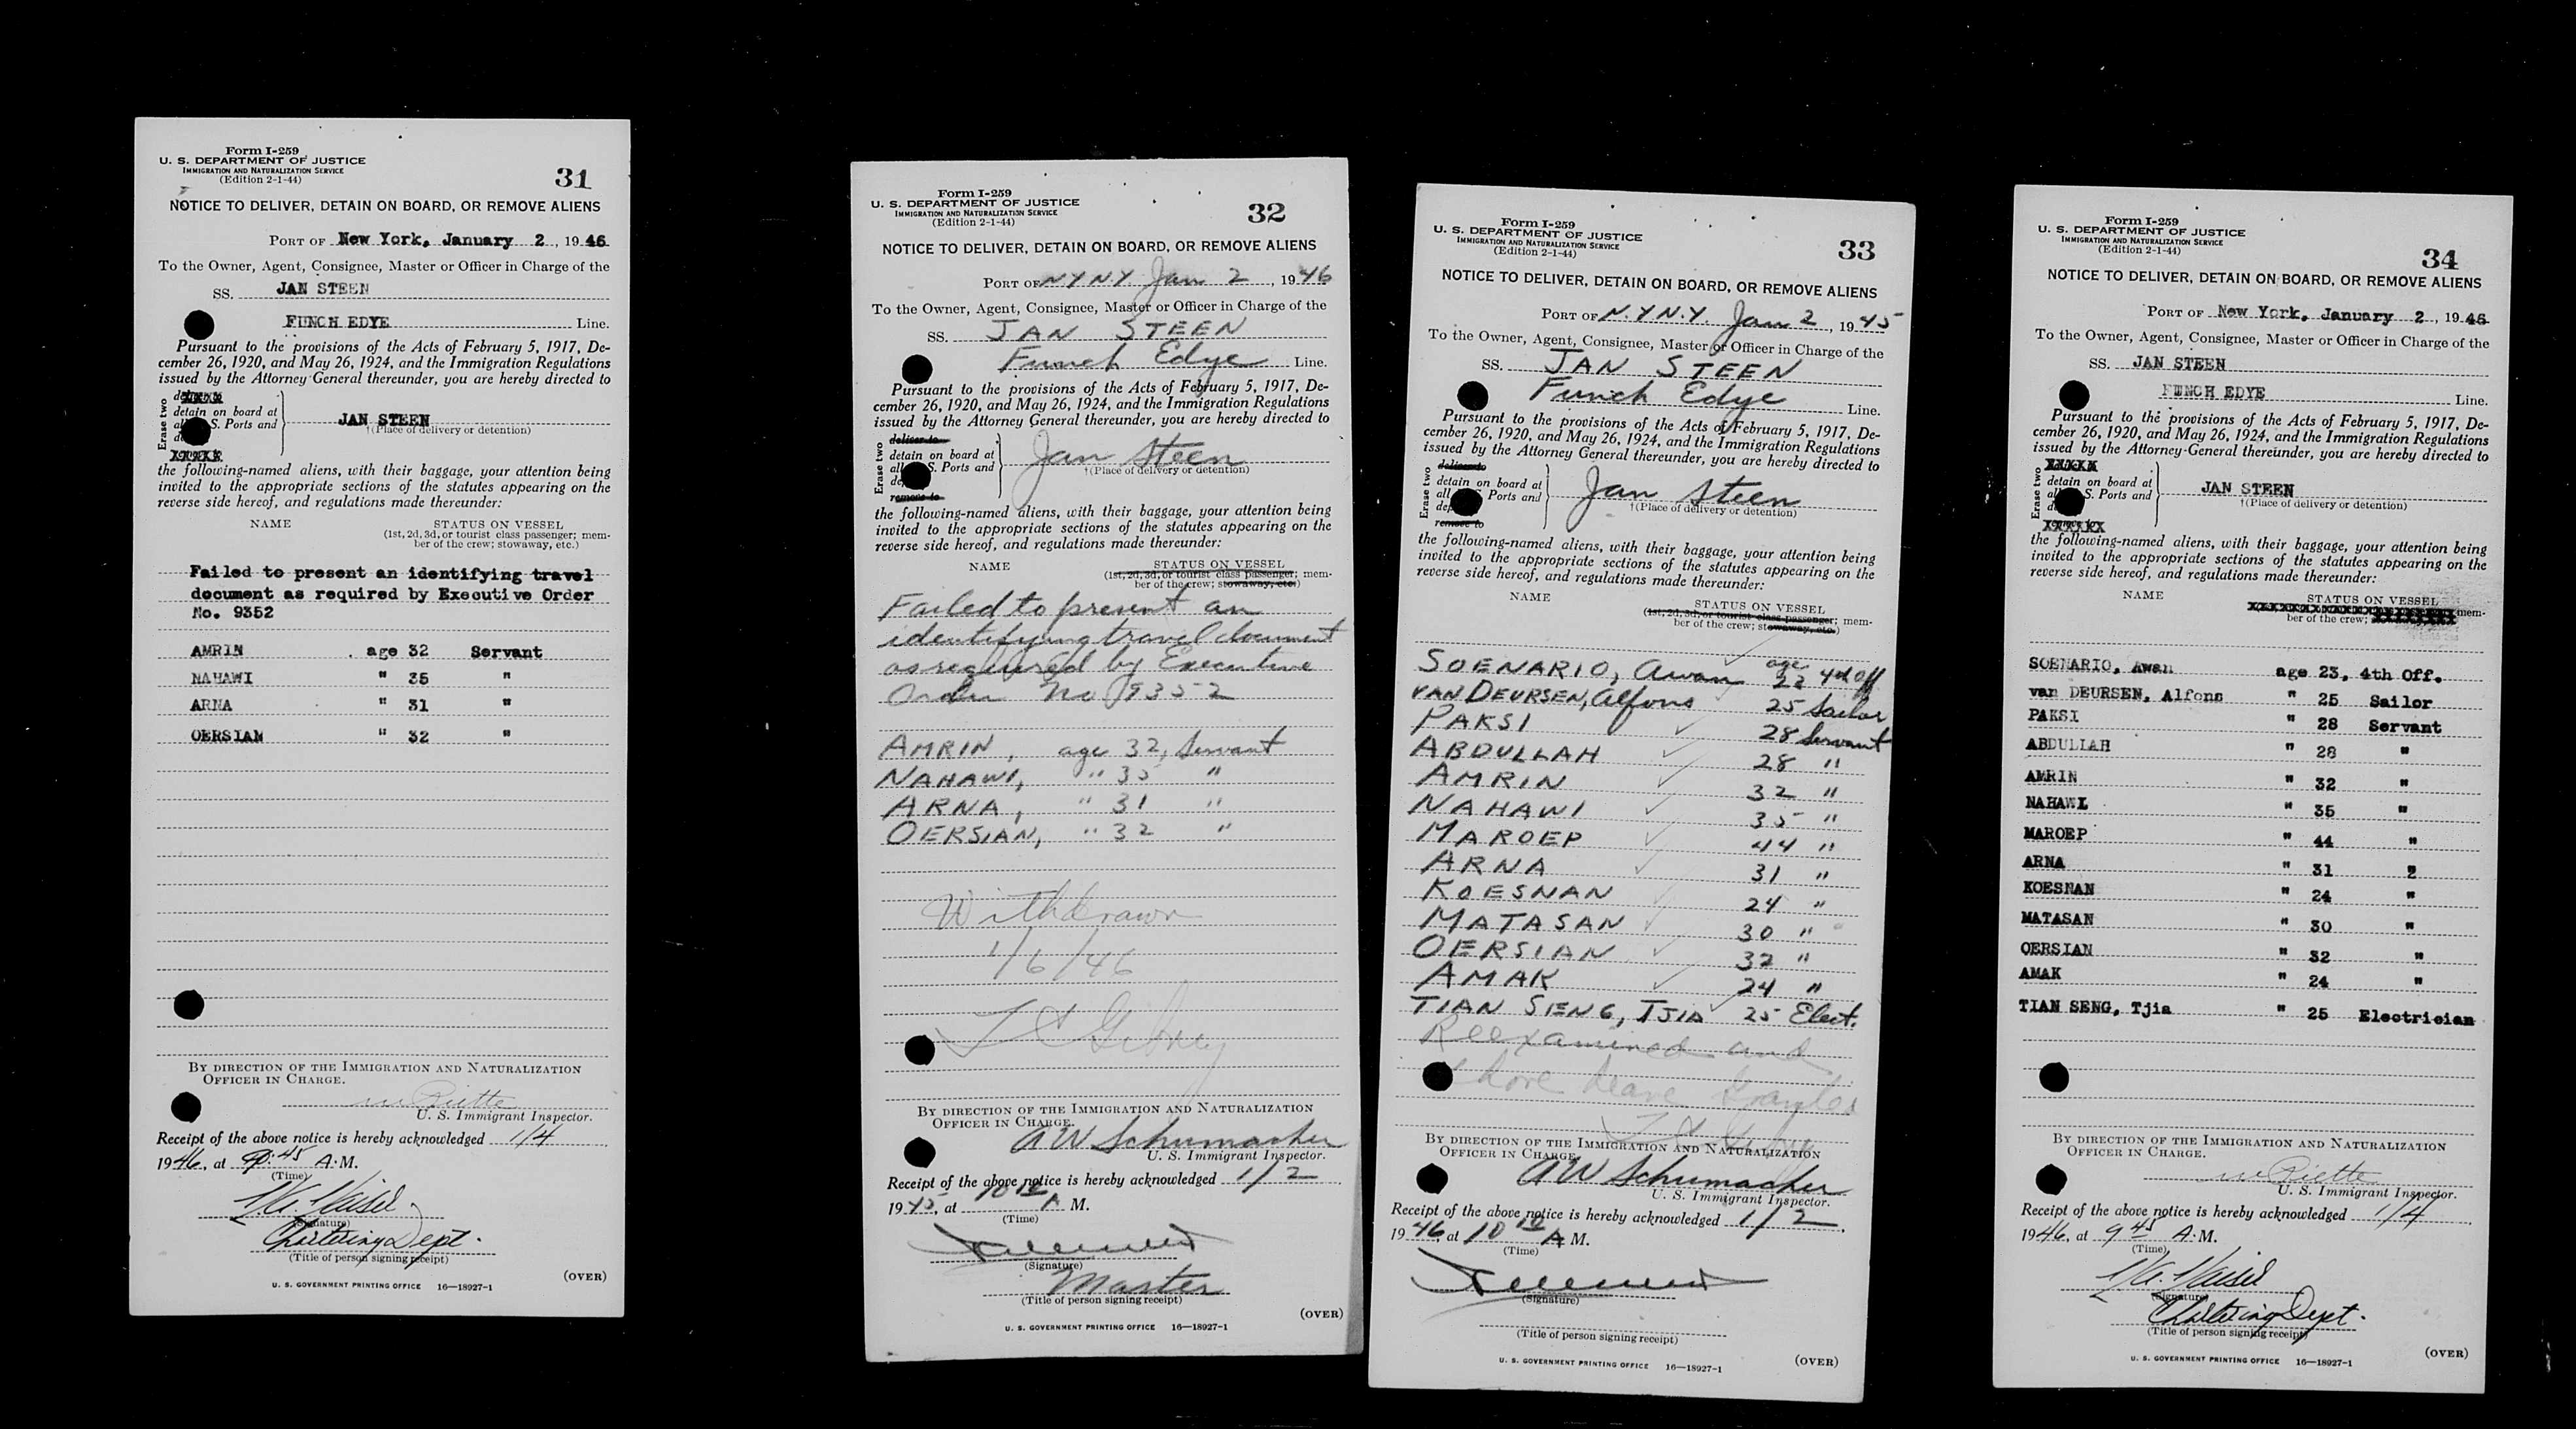 Form I-259
U. S. DEPARTMENT OF JUSTICE
IMMIGRATION AND NATURALIZATION SERVICE
(Edition 2-1-44)
31
NOTICE TO DELIVER, DETAIN ON BOARD, OR REMOVE ALIENS
PORT OF New York, January 2, 1946
To the Owner, Agent, Consignee, Master or Officer in Charge of the
SS. JAN STEEN
FUNCH EDYE Line.
Pursuant to the provisions of the Acts of February 5, 1917, De-
cember 26, 1920, and May 26, 1924, and the Immigration Regulations
issued by the Attorney General thereunder, you are hereby directed to
Erase two
detain on board at
S. Ports and
JAN STEEN
†(Place of delivery or detention)
the following-named aliens, with their baggage, your attention being
invited to the appropriate sections of the statutes appearing on the
reverse side hereof, and regulations made thereunder:
NAME STATUS ON VESSEL
(1st, 2d, 3d, or tourist class passenger; mem-
ber of the crew; stowaway, etc.)
Failed to present an identifying travel
document as required by Executive Order
No. 9352
AMRIN age 32 Servant
NAHAWI " 35 "
ARNA " 31 "
OERSIAN " 32 "
BY DIRECTION OF THE IMMIGRATION AND NATURALIZATION
OFFICER IN CHARGE.
U. S. Immigrant Inspector.
Receipt of the above notice is hereby acknowledged 1/4
1946, at 9:45 A. M.
(Time)
(Signature)
Chartering Dept.
(Title of person signing receipt)
U. S. GOVERNMENT PRINTING OFFICE 16—18927-1
(OVER)
Form I-259
U. S. DEPARTMENT OF JUSTICE
IMMIGRATION AND NATURALIZATION SERVICE
(Edition 2-1-44)
32
NOTICE TO DELIVER, DETAIN ON BOARD, OR REMOVE ALIENS
PORT OF N.Y N.Y. Jan 2, 1946
To the Owner, Agent, Consignee, Master or Officer in Charge of the
SS. JAN STEEN
Funch Edye Line.
Pursuant to the provisions of the Acts of February 5, 1917, De-
cember 26, 1920, and May 26, 1924, and the Immigration Regulations
issued by the Attorney General thereunder, you are hereby directed to
Erase two
deliver to
detain on board at
all S. Ports and
remove to
Jan Steen
†(Place of delivery or detention)
the following-named aliens, with their baggage, your attention being
invited to the appropriate sections of the statutes appearing on the
reverse side hereof, and regulations made thereunder:
NAME STATUS ON VESSEL
(1st, 2d, 3d, or tourist class passenger; mem-
ber of the crew; stowaway, etc.)
Failed to present an
identifying travel document
as required by Executive
Order No 9352
AMRIN, age 32, Servant
NAHAWI, " 35 "
ARNA, " 31 "
OERSIAN, " 32 "
Withdrawn
1/6/46
BY DIRECTION OF THE IMMIGRATION AND NATURALIZATION
OFFICER IN CHARGE.
A W Schumacher
U. S. Immigrant Inspector.
Receipt of the above notice is hereby acknowledged 1/2
1945, at 10 10 A M.
(Time)
(Signature)
Master
(Title of person signing receipt)
U. S. GOVERNMENT PRINTING OFFICE 16—18927-1
(OVER)
Form I-259
U. S. DEPARTMENT OF JUSTICE
IMMIGRATION AND NATURALIZATION SERVICE
(Edition 2-1-44)
33
NOTICE TO DELIVER, DETAIN ON BOARD, OR REMOVE ALIENS
PORT OF N.Y N.Y. Jan 2, 1945
To the Owner, Agent, Consignee, Master or Officer in Charge of the
SS. JAN STEEN
Funch Edye Line.
Pursuant to the provisions of the Acts of February 5, 1917, De-
cember 26, 1920, and May 26, 1924, and the Immigration Regulations
issued by the Attorney General thereunder, you are hereby directed to
Erase two
deliver to
detain on board at
all Ports and
remove to
Jan Steen
†(Place of delivery or detention)
the following-named aliens, with their baggage, your attention being
invited to the appropriate sections of the statutes appearing on the
reverse side hereof, and regulations made thereunder:
NAME STATUS ON VESSEL
(1st, 2d, 3d, or tourist class passenger; mem-
ber of the crew; stowaway, etc.)
SOENARIO, Awan age 23 4th Off
VAN DEURSEN, Alfons 25 Sailor
PAKSI 28 Servant
ABDULLAH 28 "
AMRIN 32 "
NAHAWI 35 "
MAROEP 44 "
ARNA 31 "
KOESNAN 24 "
MATASAN 30 "
OERSIAN 32 "
AMAK 24 "
TIAN SIENG, TJIA 25 Elect.
Reexamined and
shore leave granted
BY DIRECTION OF THE IMMIGRATION AND NATURALIZATION
OFFICER IN CHARGE.
A W Schumacher
U. S. Immigrant Inspector.
Receipt of the above notice is hereby acknowledged 1/2
1946, at 10 10 A M.
(Time)
(Signature)
(Title of person signing receipt)
U. S. GOVERNMENT PRINTING OFFICE 16—18927-1
(OVER)
Form I-259
U. S. DEPARTMENT OF JUSTICE
IMMIGRATION AND NATURALIZATION SERVICE
(Edition 2-1-44)
34
NOTICE TO DELIVER, DETAIN ON BOARD, OR REMOVE ALIENS
PORT OF New York, January 2, 1946
To the Owner, Agent, Consignee, Master or Officer in Charge of the
SS. JAN STEEN
FUNCH EDYE Line.
Pursuant to the provisions of the Acts of February 5, 1917, De-
cember 26, 1920, and May 26, 1924, and the Immigration Regulations
issued by the Attorney General thereunder, you are hereby directed to
Erase two
detain on board at
S. Ports and
JAN STEEN
†(Place of delivery or detention)
the following-named aliens, with their baggage, your attention being
invited to the appropriate sections of the statutes appearing on the
reverse side hereof, and regulations made thereunder:
NAME STATUS ON VESSEL
mem-
ber of the crew;
SOENARIO, Awan age 23, 4th Off.
van DEURSEN, Alfons " 25 Sailor
PAKSI " 28 Servant
ABDULLAH " 28 "
AMRIN " 32 "
NAHAWI " 35 "
MAROEP " 44 "
ARNA " 31 2
KOESNAN " 24 "
MATASAN " 30 "
OERSIAN " 32 "
AMAK " 24 "
TIAN SENG, Tjia " 25 Electrician
BY DIRECTION OF THE IMMIGRATION AND NATURALIZATION
OFFICER IN CHARGE.
U. S. Immigrant Inspector.
Receipt of the above notice is hereby acknowledged 1/4
1946, at 9 45 A. M.
(Time)
(Signature)
Chartering Dept.
(Title of person signing receipt)
U. S. GOVERNMENT PRINTING OFFICE 16—18927-1
(OVER)